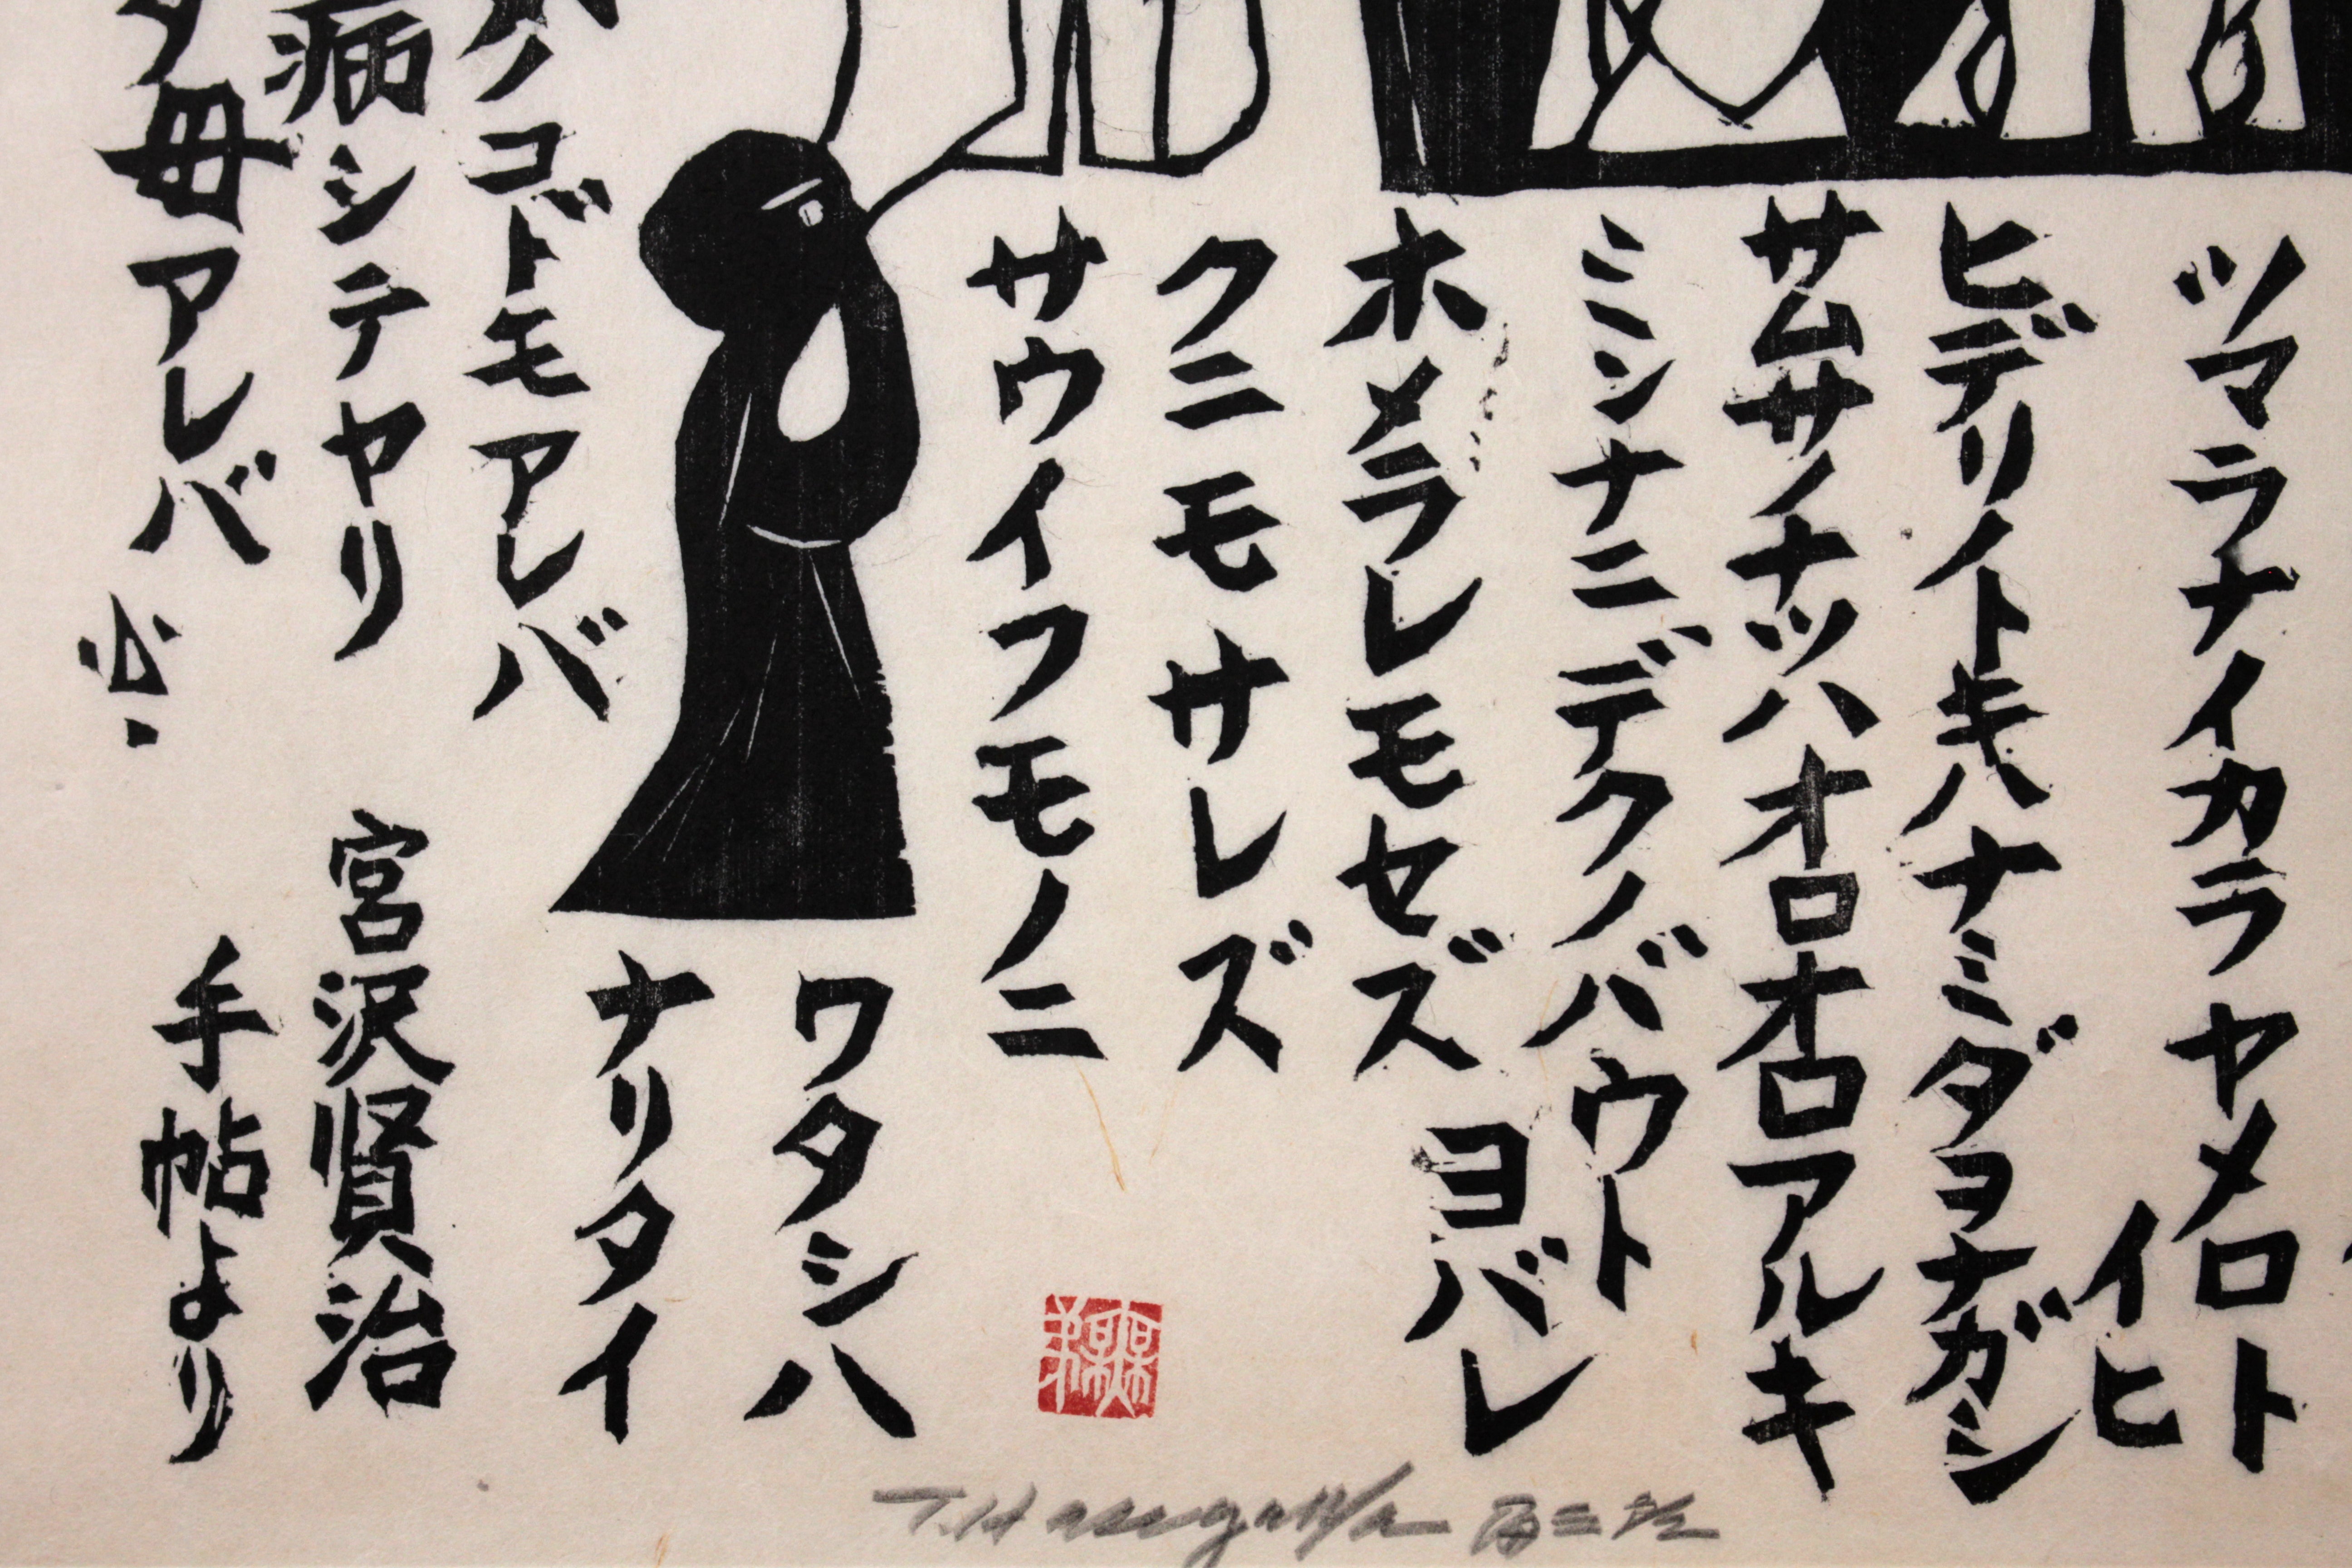 ツマラナイカラヤメロト
イヒ
ヒデリノトキハナミダヲナガシ
サムサノナツハオロオロアルキ
ミンナニデクノバウト
ヨバレ
ホメラレモセズ
クニモサレズ
サウイフモノニ
ワタシハ
ナリタイ
ノコドモアレバ
病シテヤリ
タ母アレバ
宮沢賢治
手帖より
T. Hasegawa